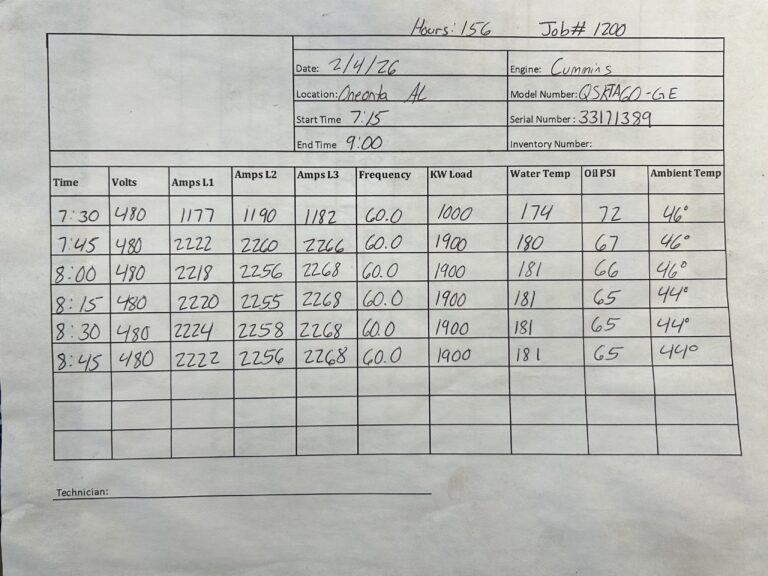 Hours: 156 Job# 1200
Date: 2/4/26 Engine: Cummins
Location: Oneonta AL Model Number: QSKTA60-GE
Start Time 7:15 Serial Number: 33171389
End Time 9:00 Inventory Number:
Time Volts Amps L1 Amps L2 Amps L3 Frequency KW Load Water Temp Oil PSI Ambient Temp
7:30 480 1177 1190 1182 60.0 1000 174 72 46°
7:45 480 2222 2260 2266 60.0 1900 180 67 46°
8:00 480 2218 2256 2268 60.0 1900 181 66 46°
8:15 480 2220 2255 2268 60.0 1900 181 65 44°
8:30 480 2224 2258 2268 60.0 1900 181 65 44°
8:45 480 2222 2256 2268 60.0 1900 181 65 44°
Technician: